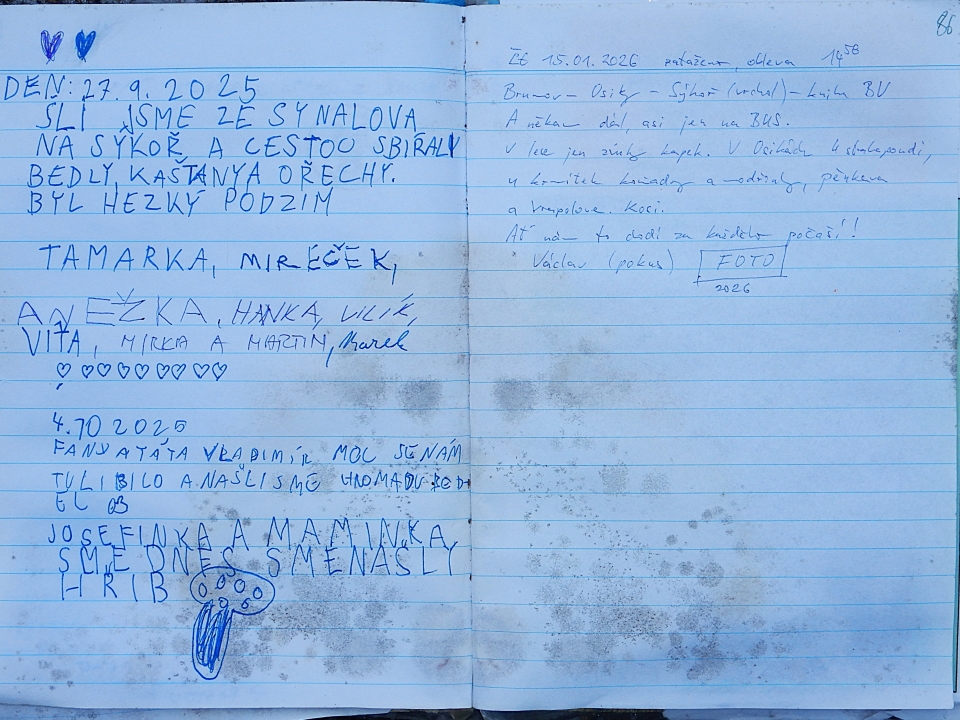 DEN: 27.9.2025
ŠLI JSME ZE SYNALOVA
NA SÝKOŘ A CESTOU SBÍRALY
BEDLY, KAŠTANY A OŘECHY.
BYL HEZKÝ PODZIM
TAMARKA, MIREČEK,
ANEŽKA, HANKA, VILÍK,
VÍŤA, MIRKA A MARTIN, Marek
4.10 2025
FANY A TÁTA VLADIMÍR MOC SE NÁM
TU LÍBILO A NAŠLI SME HROMADU BED
EL
JOSEFINKA A MAMINKA,
SME DNES SMENAŠLY
HŘIB
86
15.01.2026 zataženo, obleva 14 58
Brumov - Osiky - Sýkoř (vrchol) - kniha BV
A někam dál, asi jen na BUS.
V lese jen zvuky kapek. V Osikách 4 strakapoudi,
u krmítek a modřinky, pěnkava
a Kosi.
Ať nám to ladí za každého počasí!!
Václav (pokus) FOTO
2026